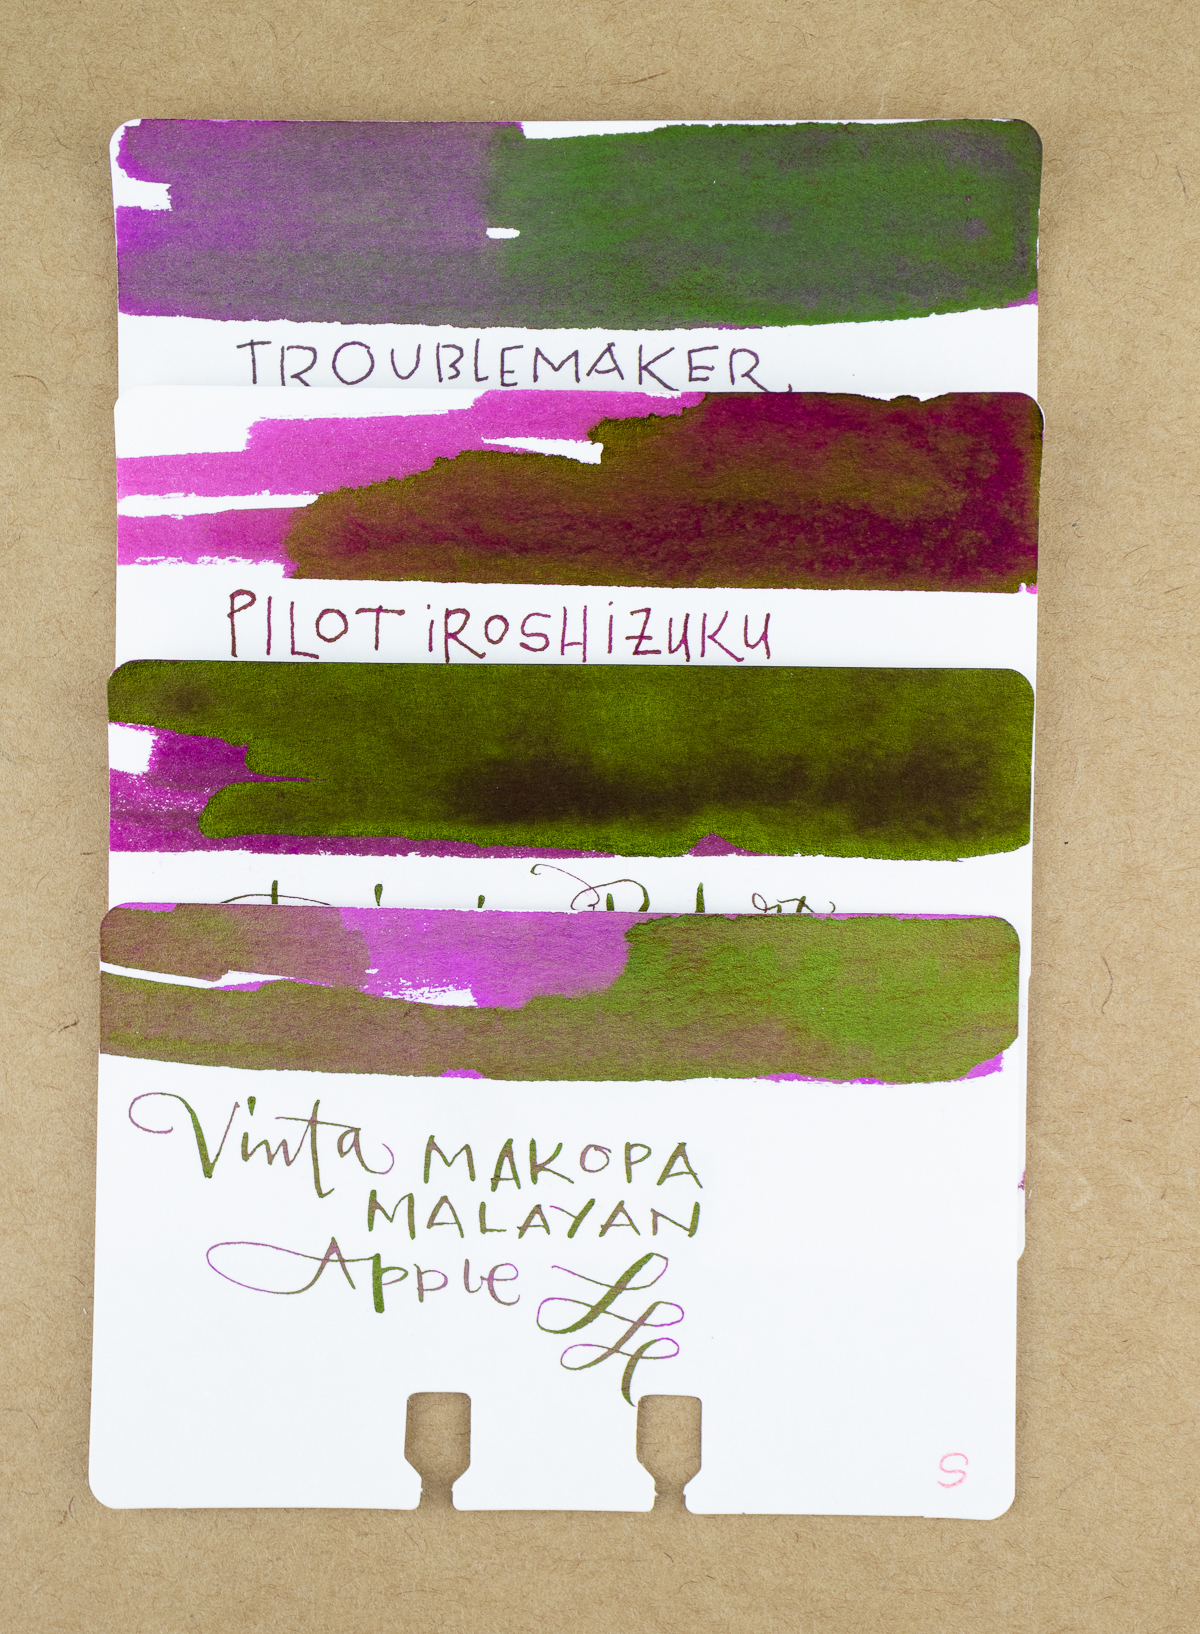 TROUBLEMAKER
PILOT iROSHiZUKU
Vinta MAKOPA
MALAYAN
Apple
S